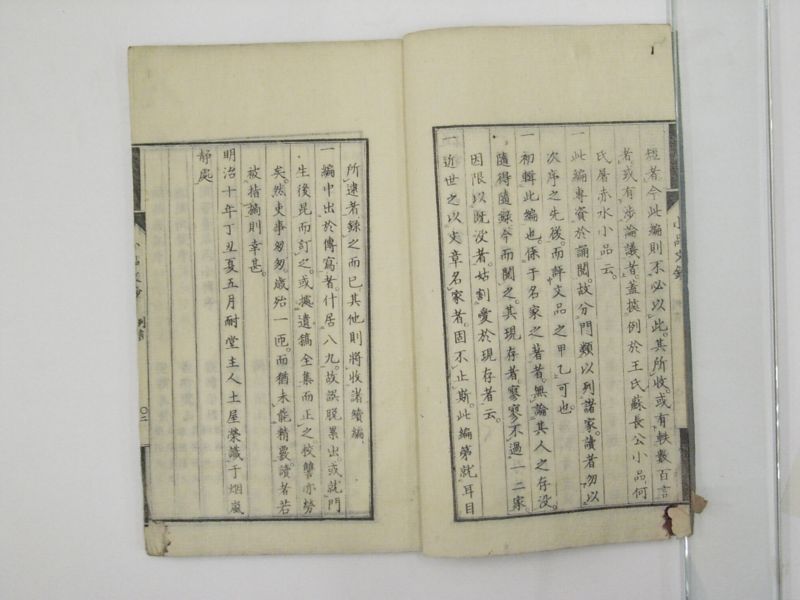 短者今此編則不必以此。其所收。或有軼數百言
者。或有涉論議者。蓋擬例於王氏蘇長公小品。何
氏屠赤水小品云。
一此編專資於誦閱。故分門類以列諸家。讀者勿以
次序之先後。而評文品之甲乙可也。
一初輯此編也。係于名家之著者。無論其人之存沒。
隨得隨錄。今而閱之。其現存者。寥寥不過一二家。
因限以既沒者。姑割愛於現存者云。
一近世之以文章名家者。固不止斯。此編第就耳目
所逮者錄之而已其他則將收諸續編。
一編中出於傳寫者。什居八九。故誤脫累出。或就門
生後昆而訂之。或據遺稿全集而正之。校讐亦勞
矣。然吏事匆匆。歲殆一匝。而猶未能精覈。讀者若
被指摘則幸甚。
明治十年丁丑夏五月耐堂主人土屋榮識于烟嵐
靜處
例言
〇二
1